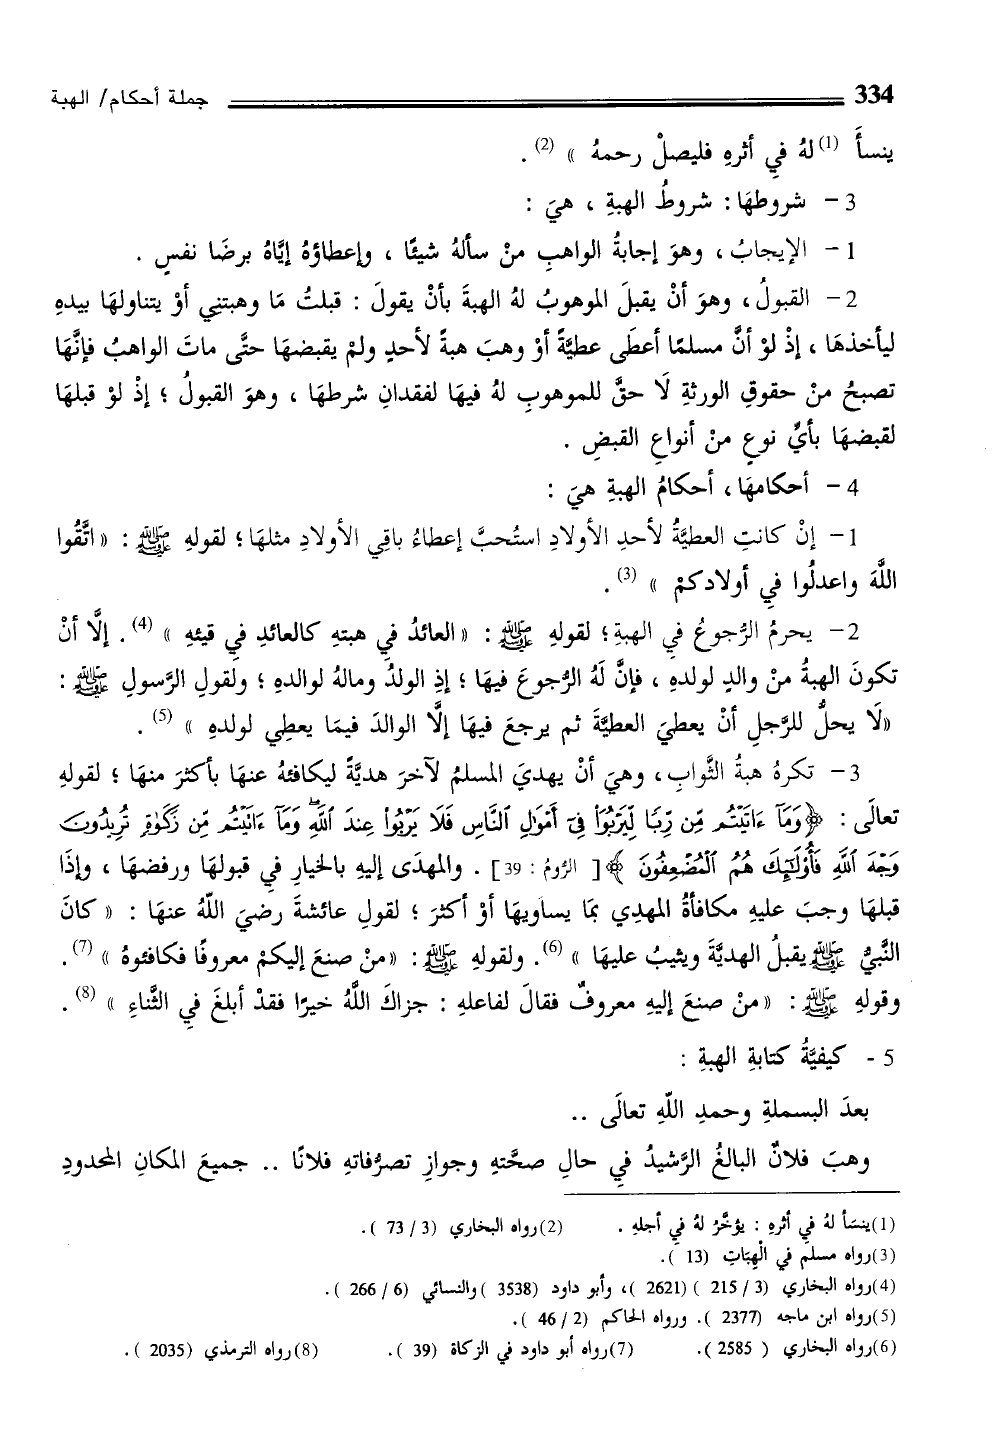 334 جملة أحكام/ الهبة
ينسأَ (1) لهُ في أثرهِ فليصلْ رحمهُ » (2) .
3 - شروطهَا : شروطُ الهبةِ ، هيَ :
1 - الإيجابُ ، وهوَ إجابةُ الواهبِ منْ سألهُ شيئًا ، وإعطاؤهُ إيَّاهُ برضَا نفسٍ .
2 - القبولُ ، وهوَ أنْ يقبلَ الموهوبُ لهُ الهبةَ بأنْ يقولَ : قبلتُ مَا وهبتنِي أوْ يتناولهَا بيدهِ
ليأخذهَا ، إذْ لوْ أنَّ مسلمًا أعطَى عطيَّةً أوْ وهبَ هبةً لأحدٍ ولمْ يقبضهَا حتَّى ماتَ الواهبُ فإنَّهَا
تصبحُ منْ حقوقِ الورثةِ لَا حقَّ للموهوبِ لهُ فيهَا لفقدانِ شرطهَا ، وهوَ القبولُ ؛ إذْ لوْ قبلهَا
لقبضهَا بأيِّ نوعٍ منْ أنواعِ القبضِ .
4 - أحكامهَا ، أحكامُ الهبةِ هيَ :
1 - إنْ كانتِ العطيَّةُ لأحدِ الأولادِ استُحبَّ إعطاءُ باقِي الأولادِ مثلهَا ؛ لقولهِ ﷺ : « اتَّقُوا
اللَّهَ واعدلُوا في أولادكمْ » (3) .
2 - يحرمُ الرُّجوعُ في الهبةِ ؛ لقولهِ ﷺ : « العائدُ في هبتهِ كالعائدِ في قيئهِ » (4) . إلَّا أنْ
تكونَ الهبةُ منْ والدٍ لولدهِ ، فإنَّ لهُ الرُّجوعَ فيهَا ؛ إذِ الولدُ ومالهُ لوالدهِ ؛ ولقولِ الرَّسولِ ﷺ :
«لَا يحلُّ للرَّجلِ أنْ يعطيَ العطيَّةَ ثم يرجعَ فيهَا إلَّا الوالدَ فيمَا يعطِي لولدهِ » (5) .
3 - تكرهُ هبةُ الثَّوابِ ، وهيَ أنْ يهديَ المسلمُ لآخرَ هديَّةً ليكافئهُ عنهَا بأكثرَ منهَا ؛ لقولهِ
تعالَى : ﴿وَمَآ ءَاتَيْتُم مِّن رِّبًا لِّيَرْبُوَا۟ فِىٓ أَمْوَٰلِ ٱلنَّاسِ فَلَا يَرْبُوا۟ عِندَ ٱللَّهِ ۖ وَمَآ ءَاتَيْتُم مِّن زَكَوٰةٍ تُرِيدُونَ
وَجْهَ ٱللَّهِ فَأُو۟لَٰٓئِكَ هُمُ ٱلْمُضْعِفُونَ ﴾ [ الرُّومُ : 39] . والمهدَى إليهِ بالخيارِ في قبولهَا ورفضهَا ، وإذَا
قبلهَا وجبَ عليهِ مكافأةُ المهدِي بمَا يساويهَا أوْ أكثرَ ؛ لقولِ عائشةَ رضيَ اللَّهُ عنهَا : « كانَ
النَّبيُّ ﷺ يقبلُ الهديَّةَ ويثيبُ عليهَا » (6) . ولقولهِ ﷺ : «منْ صنعَ إليكمْ معروفًا فكافئوهُ » (7) .
وقولهِ ﷺ : « منْ صنعَ إليهِ معروفٌ فقالَ لفاعلهِ : جزاكَ اللَّهُ خيرًا فقدْ أبلغَ في الثَّناءِ » (8) .
5 - كيفيَّةُ كتابةِ الهبةِ :
بعدَ البسملةِ وحمدِ اللَّهِ تعالَى ..
وهبَ فلانٌ البالغُ الرَّشيدُ في حالِ صحَّتهِ وجوازِ تصرُّفاتهِ فلانًا .. جميعَ المكانِ المحدودِ
(1)ينسَأ لهُ في أثرهِ : يؤخَّرُ لهُ في أجلهِ . (2)رواه البخاري (3 / 73 ).
(3)رواه مسلم في الْهِبَاتِ (13 ).
(4)رواه البخاري (3 / 215 ) (2621 )، وأبو داود (3538 ) والنسائي (6 / 266 ).
(5)رواه ابن ماجه (2377 ). ورواه الحاكم (2 / 46 ).
(6)رواه البخاري ( 2585 ). (7)رواه أبو داود في الزكاة (39 ). (8)رواه الترمذي (2035 ).